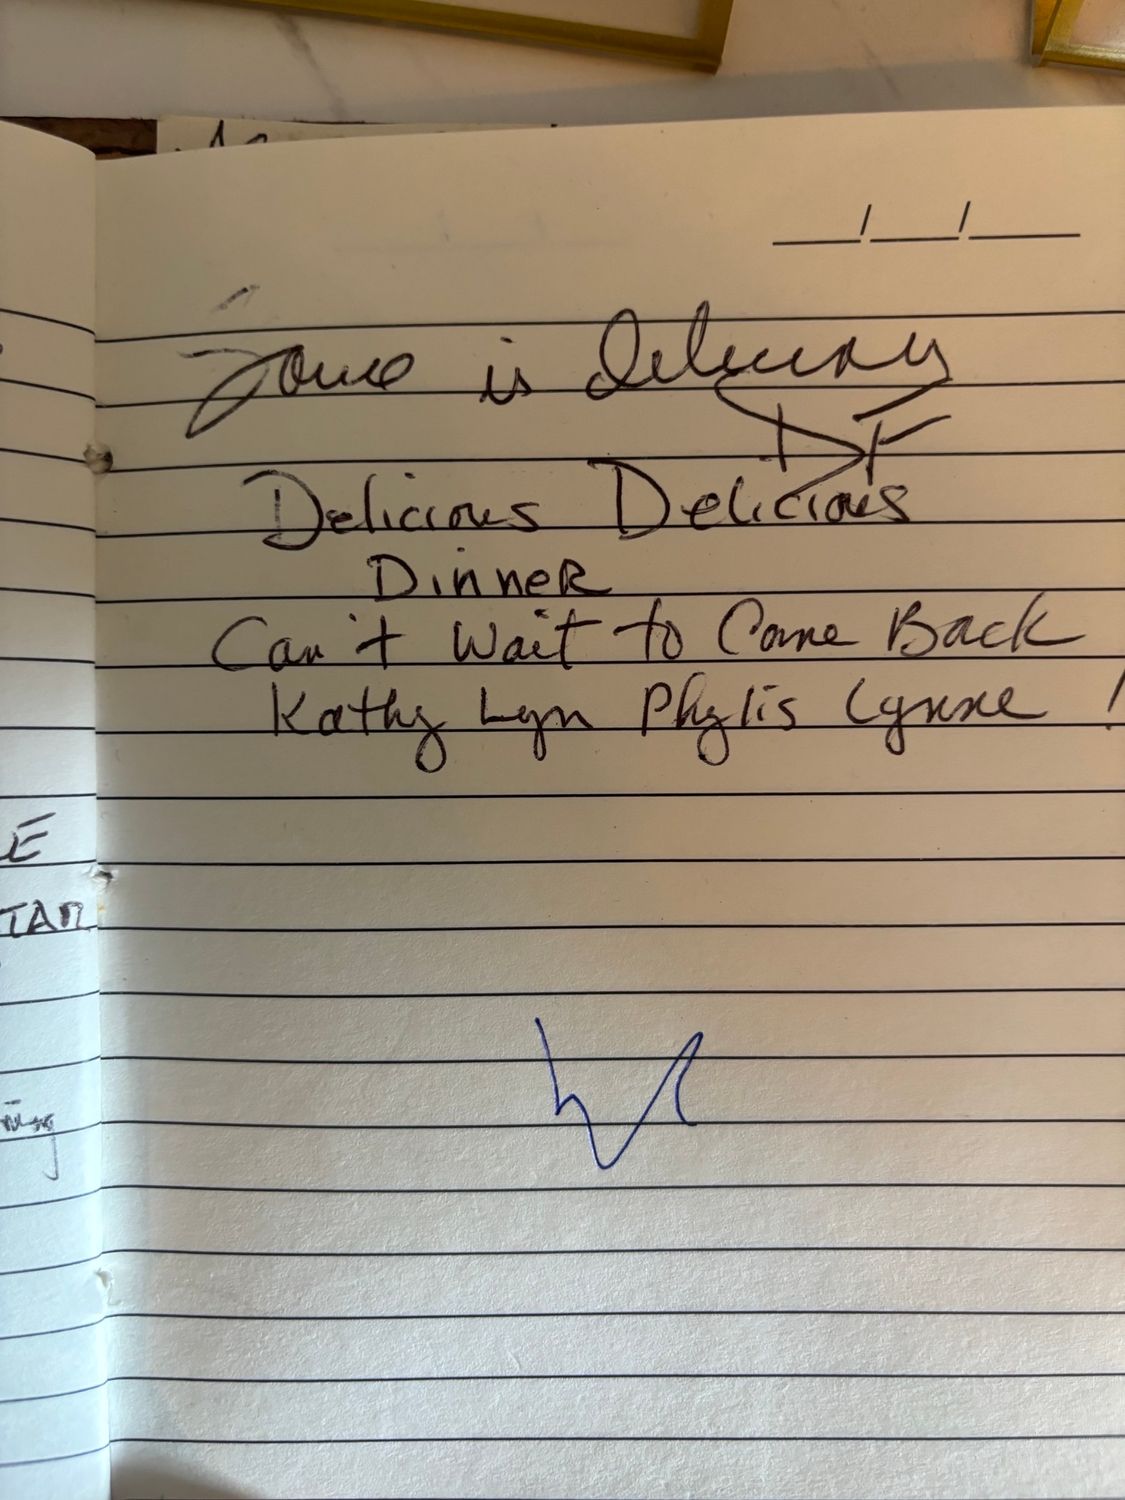 is
DF
Delicious Delicious
Dinner
Can't Wait to Come Back
Kathy Lyn Phylis Lynne !
E
TAR